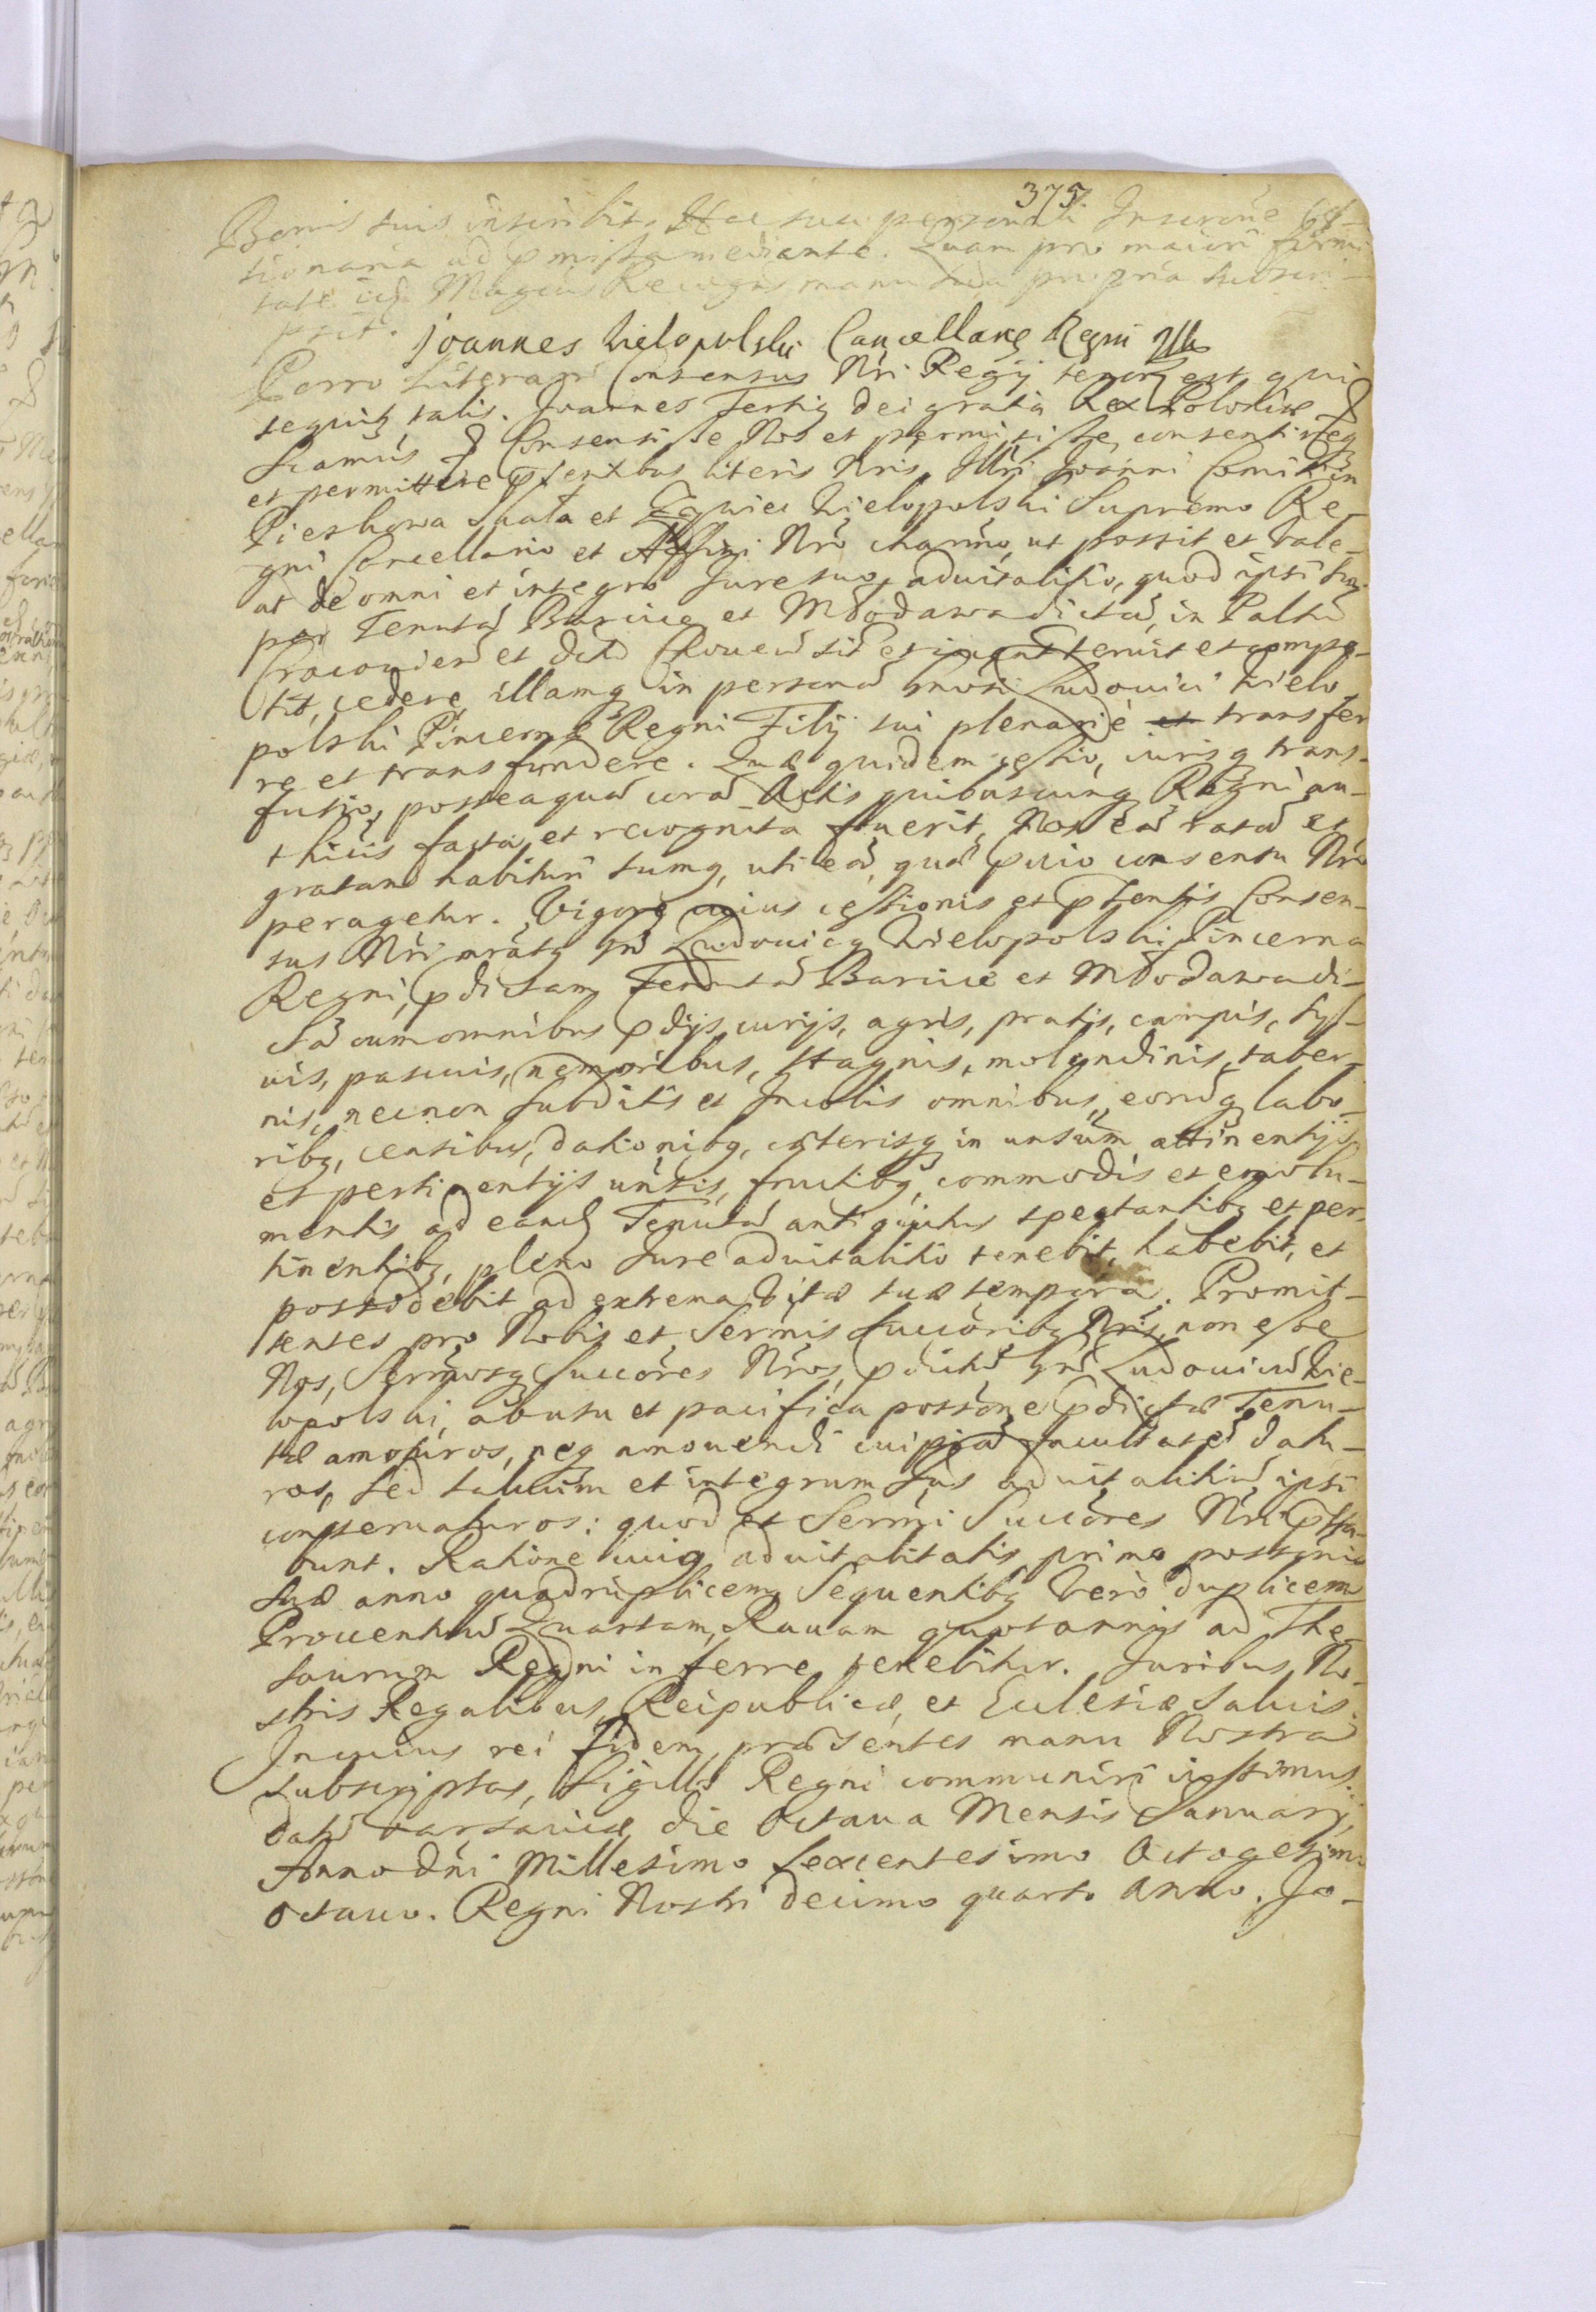 375.
Bonis suis inscribit, Hac sua personali Inscrõne
tionaria ad pmissa mediante. Quam pro maiori firmi
tate idẽ Magcus Recogns manu sua propria subscri-
psit.
Joannes Wielopolski Cancellarg Regni mp
Porro Literarũ Consensus Nri Regij tenor est qui
sequitz talis. Joannes Tertig Dei gratia Rex Poloniæ &
Sciamus & Consensisse Nos et permisisse, consentireq
et permittere pñtibus literis Nris, Illri Joanni Comiti in
Pieskowa Skała et Zywiec Wielopolski Supremo Re-
gni Cancellario et Affini Nrõ charmo, ut possit et vale-
at de omni et integro Jure suo aduitalitio, quod ipsi sup
per Tenutã Barcice et Młodawa dictã, in Palttũ
Cracouien et Distũ seruit et compe-
tit, cedere, illamq in personã Gnosi Ludouici Wielo
polski Pincernæ Regni Filij sui plenarie et transfer
re et transfundere. Quæ quidem cessio, iurisq trans-
fusio, posteaquã corã Actis quibuscunq Regni au-
thicis facta et recognita fuerit, Nos eã ratã et
gratam habituri sumq, uti eã, quã pcuio consensu Nro
peragetur. Vigore cuius cessionis et pñtis Consen-
sus Nri mrãtq Gñs Ludouicq Wielopolski Pincerna
Regni, pdictam Tenutã Barcice et Młodawa di-
ctã cum omnibus pdijs, curijs, agris, pratis, campis, syl-
uis, pascuis, nemoribus, stagnis, molendinis, taber-
nis, necnon subditis et Incolis omnibus, eorũq labo-
ribq, censibus, dationibq, cæterisq in unsum attinentijs
et pertinentijs unsis, fructibq, commodis et emolu-
mentis ad eandẽ Tenutã antiquitus spectantibq et per-
tinentibq, pleno Jure aduitalitio tenebit, habebit, et
possidebit ad extrema vitæ suæ tempora. Promit-
tentes pro Nobis et Sermis Succõribq Nris, non esse
Nos, Sermosq Succõres Nros, pdictũ Gñm Ludouicũ Wie-
lopolski, ab usu et pacifica possõne pdictæ Tenu-
tæ amoturos, neq amouendi cuipiã facultatẽ datu-
ros, sed saluum et integrum Jus aduitalitiũ ipsi
conseruaturos: quod et Sermi Succõres Nri pstã-
bunt. Ratione cuiq aduitalitatis primo possõnis
suæ anno quadruplicem, Sequentibq vero duplicem
Prouentuũ Quartam, Rauam quotannis ad The-
saurum Regni inferre tenebitur. Juribus No
stris Regalibus, Reipublicæ, et Ecclesiæ saluis.
In cuius rei fidem, præsentes manu Nostra
subscriptas, Sigillo Regni communiri iussimus.
Datũ Varsauiæ, die Octaua Mensis Januarij,
Anno Dni Millesimo Sexcentesimo Octogesimo
octauo. Regni Nostri decimo quarto Anno. Jo-